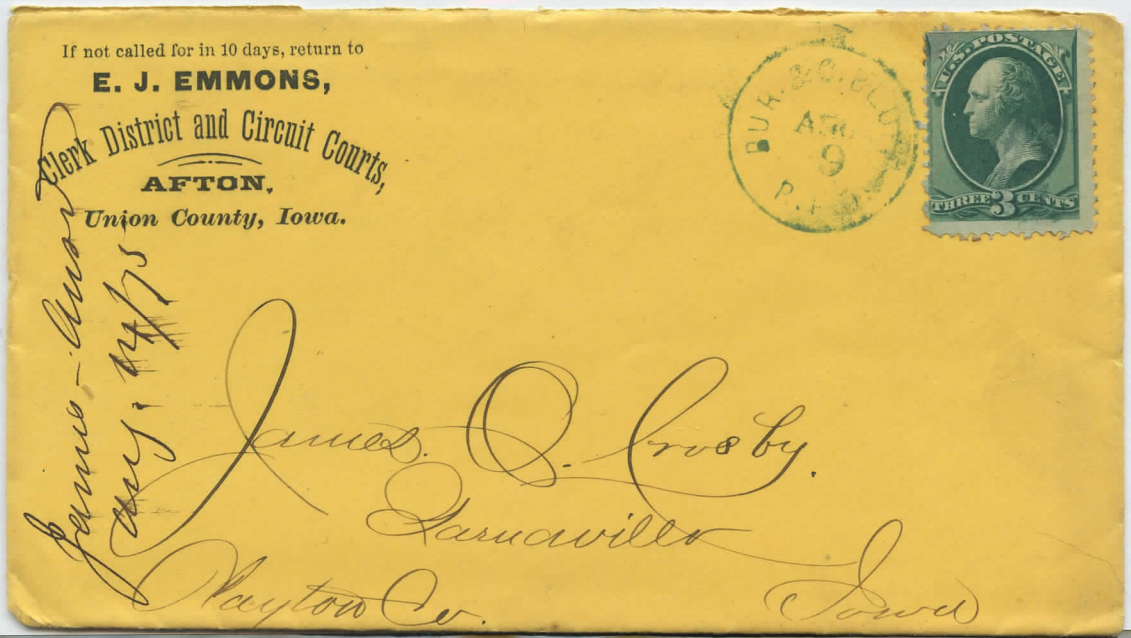 If not called for in 10 days, return to
E. J. EMMONS,
Clerk District and Circuit Courts,
AFTON,
Union County, Iowa.
BUR. &
9
R.P.O.
U.S. POSTAGE
THREE 3 CENTS
James
Aug. 14/75
James O. Crosby.
Garnavillo
Clayton Co.
Iowa